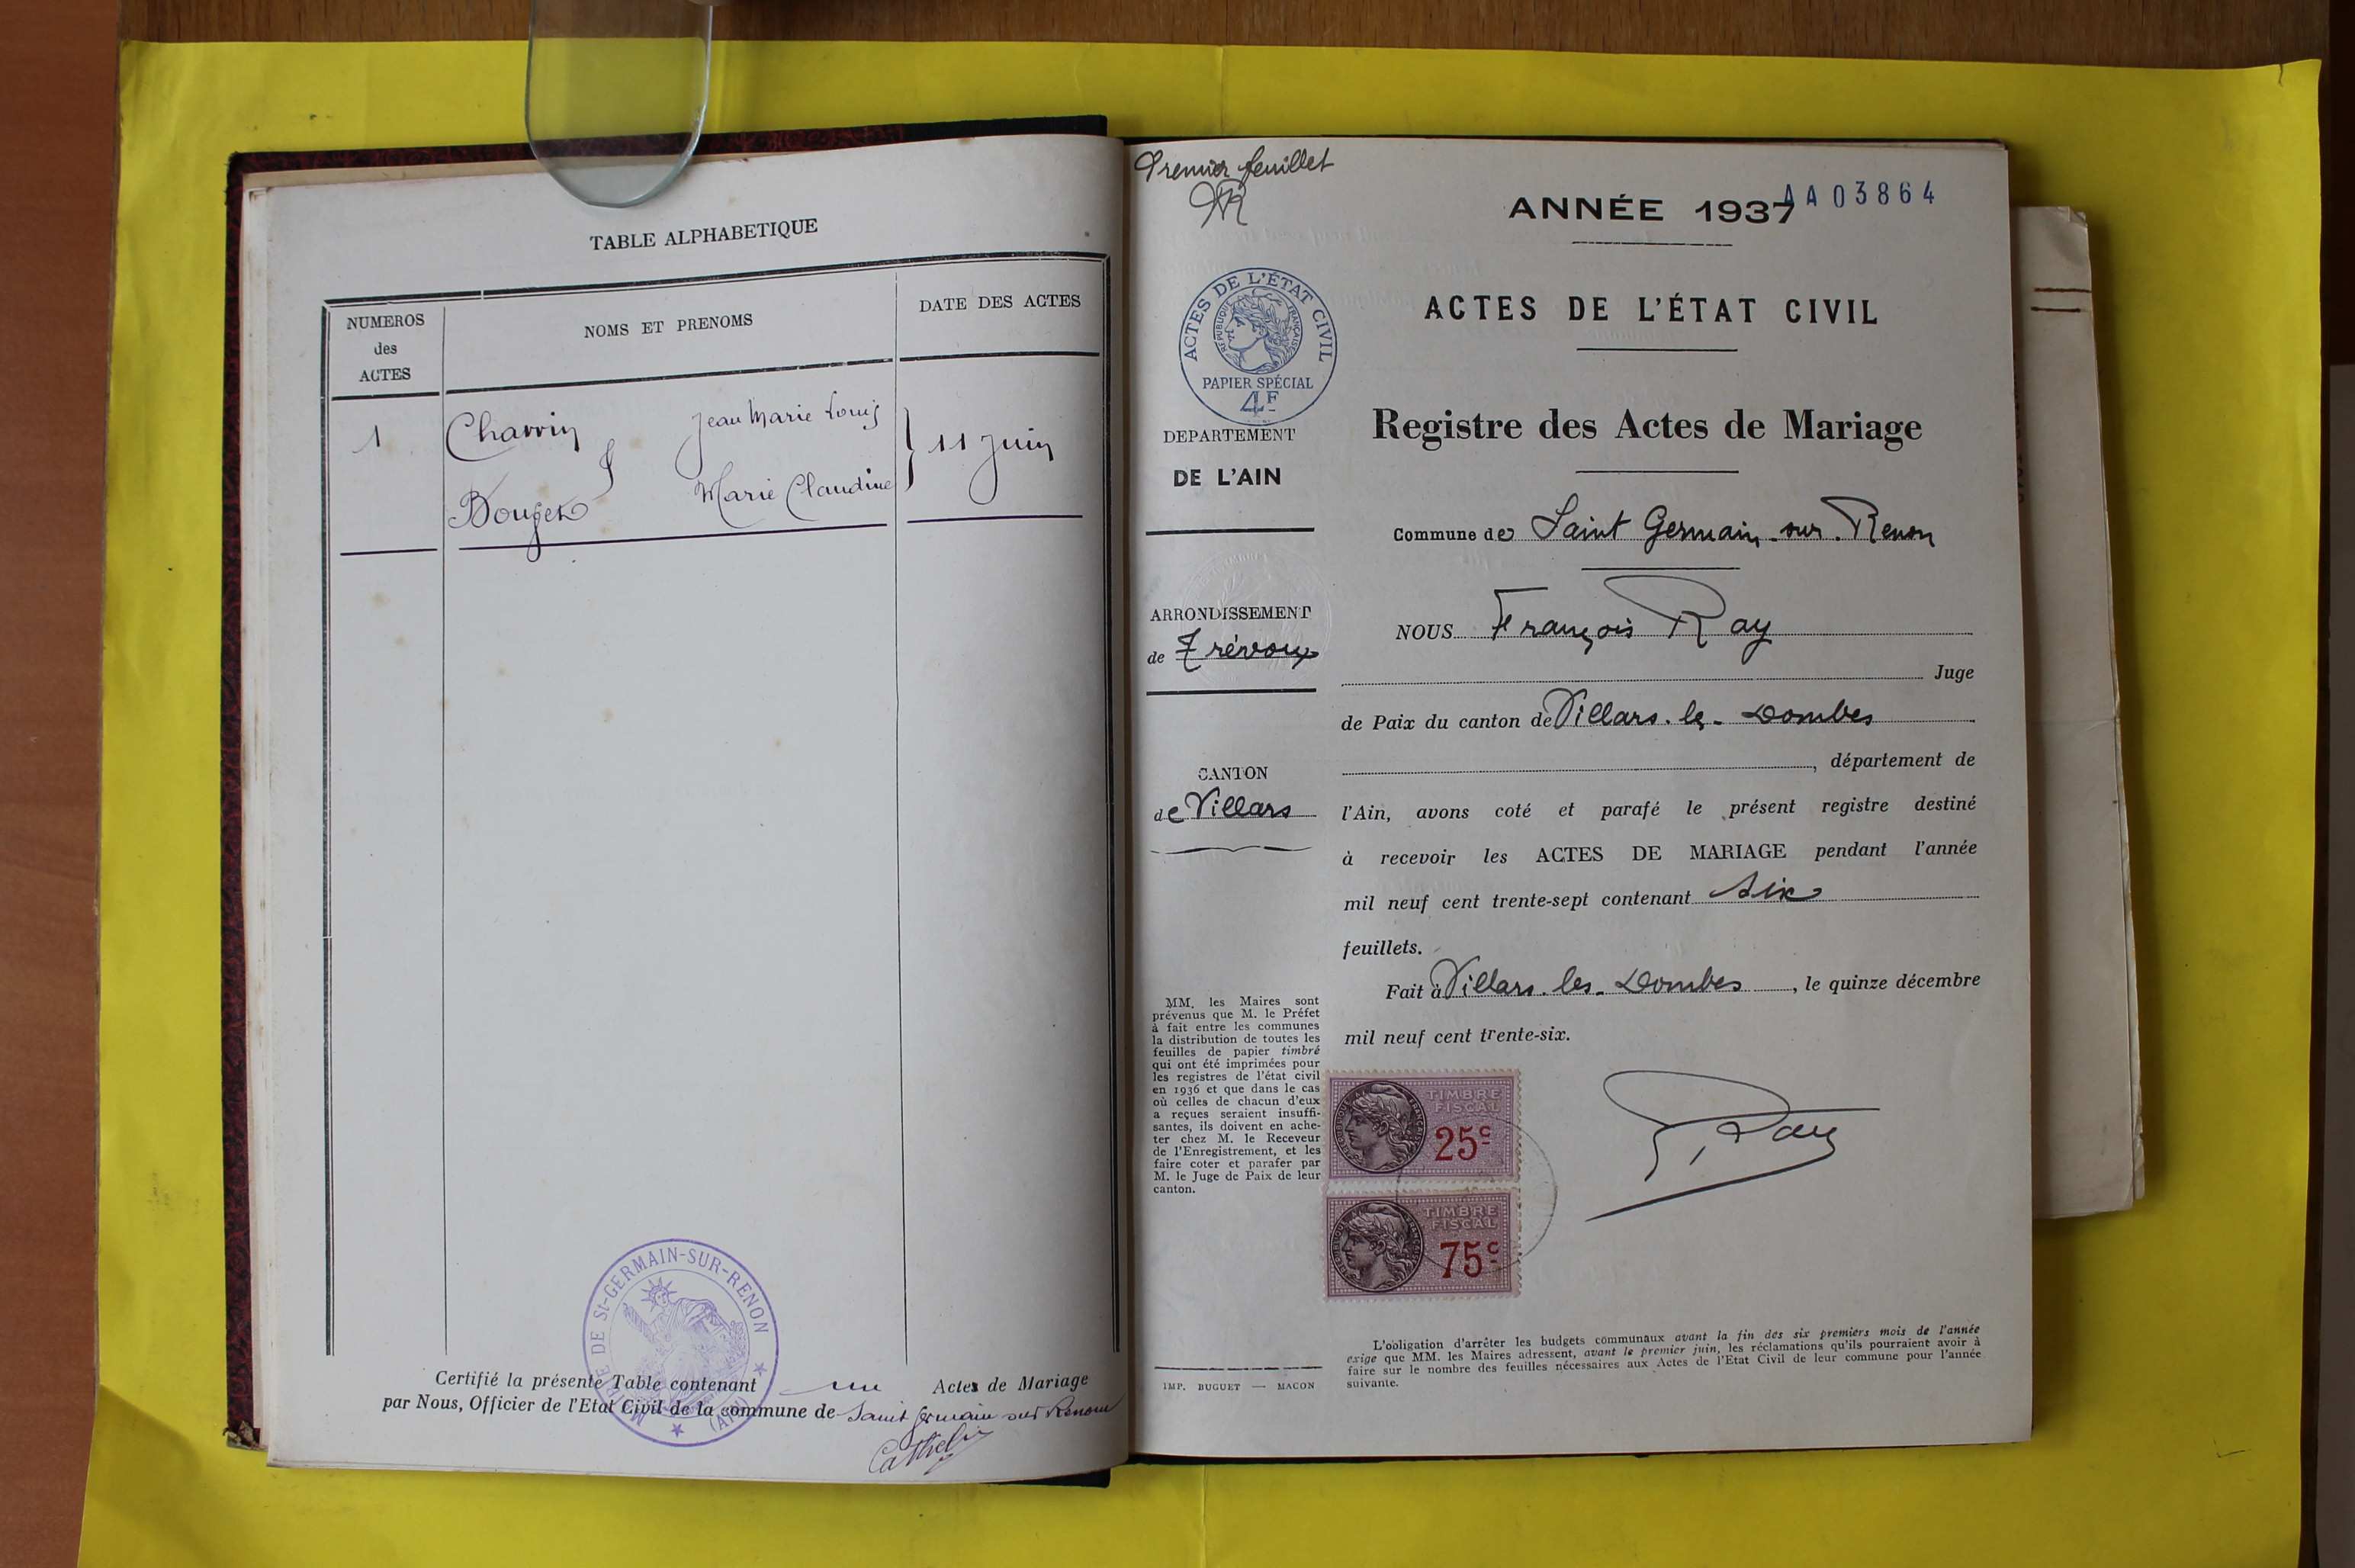 TABLE ALPHABETIQUE
NUMEROS
des
ACTES
NOMS ET PRENOMS
DATE DES ACTES
1
Charvin
Jean Marie Louis
&
11 juin
Marie Claudine
MAIRIE DE St-GERMAIN-SUR-RENON
(AIN)
Certifié la présente Table contenant un Actes de Mariage
par Nous, Officier de l'Etat Civil de la commune de Saint Germain sur Renom
Premier feuillet
ANNÉE 1937
AA03864
ACTES DE L'ÉTAT CIVIL
RÉPUBLIQUE FRANÇAISE
PAPIER SPÉCIAL
4F
DEPARTEMENT
DE L'AIN
ARRONDISSEMENT
de Trévoux
CANTON
de Villars
MM. les Maires sont
prévenus que M. le Préfet
à fait entre les communes
la distribution de toutes les
feuilles de papier timbré
qui ont été imprimées pour
les registres de l'état civil
en 1936 et que dans le cas
où celles de chacun d'eux
a reçues seraient insuffi-
santes, ils doivent en ache-
ter chez M. le Receveur
de l'Enregistrement, et les
faire coter et parafer par
M. le Juge de Paix de leur
canton.
IMP. BUGUET — MACON
ACTES DE L'ÉTAT CIVIL
Registre des Actes de Mariage
Commune de Saint Germain-sur-Renon
NOUS François Ray
Juge
de Paix du canton de Villars-les-Dombes
, département de
l'Ain, avons coté et parafé le présent registre destiné
à recevoir les ACTES DE MARIAGE pendant l'année
mil neuf cent trente-sept contenant six
feuillets.
Fait à Villars-les-Dombes, le quinze décembre
mil neuf cent trente-six.
TIMBRE
FISCAL
25c
TIMBRE
FISCAL
75c
F. Ray
L'obligation d'arrêter les budgets communaux avant la fin des six premiers mois de l'année
exige que MM. les Maires adressent, avant le premier juin, les réclamations qu'ils pourraient avoir à
faire sur le nombre des feuilles nécessaires aux Actes de l'Etat Civil de leur commune pour l'année
suivante.